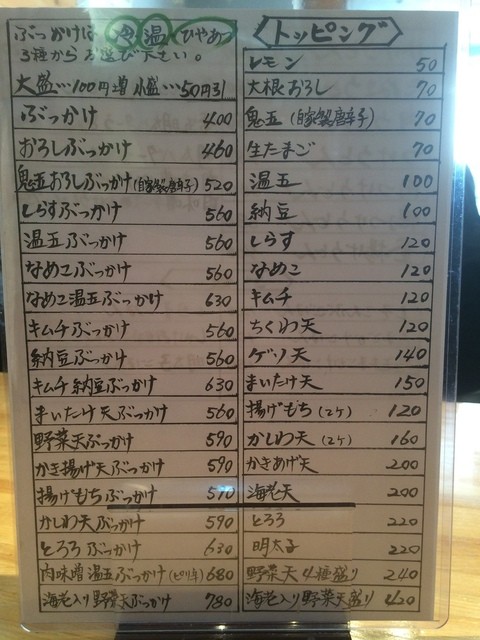 ぶっかけは 冷 温 ひやあつ
3種からお選び下さい。
大盛…100円増 小盛…50円引
ぶっかけ 400
おろしぶっかけ 460
鬼五おろしぶっかけ(自家製唐辛子) 520
しらすぶっかけ 560
温玉ぶっかけ 560
なめこぶっかけ 560
なめこ温玉ぶっかけ 630
キムチぶっかけ 560
納豆ぶっかけ 560
キムチ納豆ぶっかけ 630
まいたけ天ぶっかけ 560
野菜天ぶっかけ 590
かき揚げ天ぶっかけ 590
揚げもちぶっかけ 570
かしわ天ぶっかけ 590
とろろぶっかけ 630
肉味噌温玉ぶっかけ(ピリ辛) 680
海老入り野菜天ぶっかけ 780
トッピング
レモン 50
大根おろし 70
鬼五(自家製唐辛子) 70
生たまご 70
温玉 100
納豆 100
しらす 120
なめこ 120
キムチ 120
ちくわ天 120
ゲソ天 140
まいたけ天 150
揚げもち(2ケ) 120
かしわ天(2ケ) 160
かきあげ天 200
海老天 200
とろろ 220
明太子 220
野菜天4種盛り 240
海老入り野菜天盛り 420